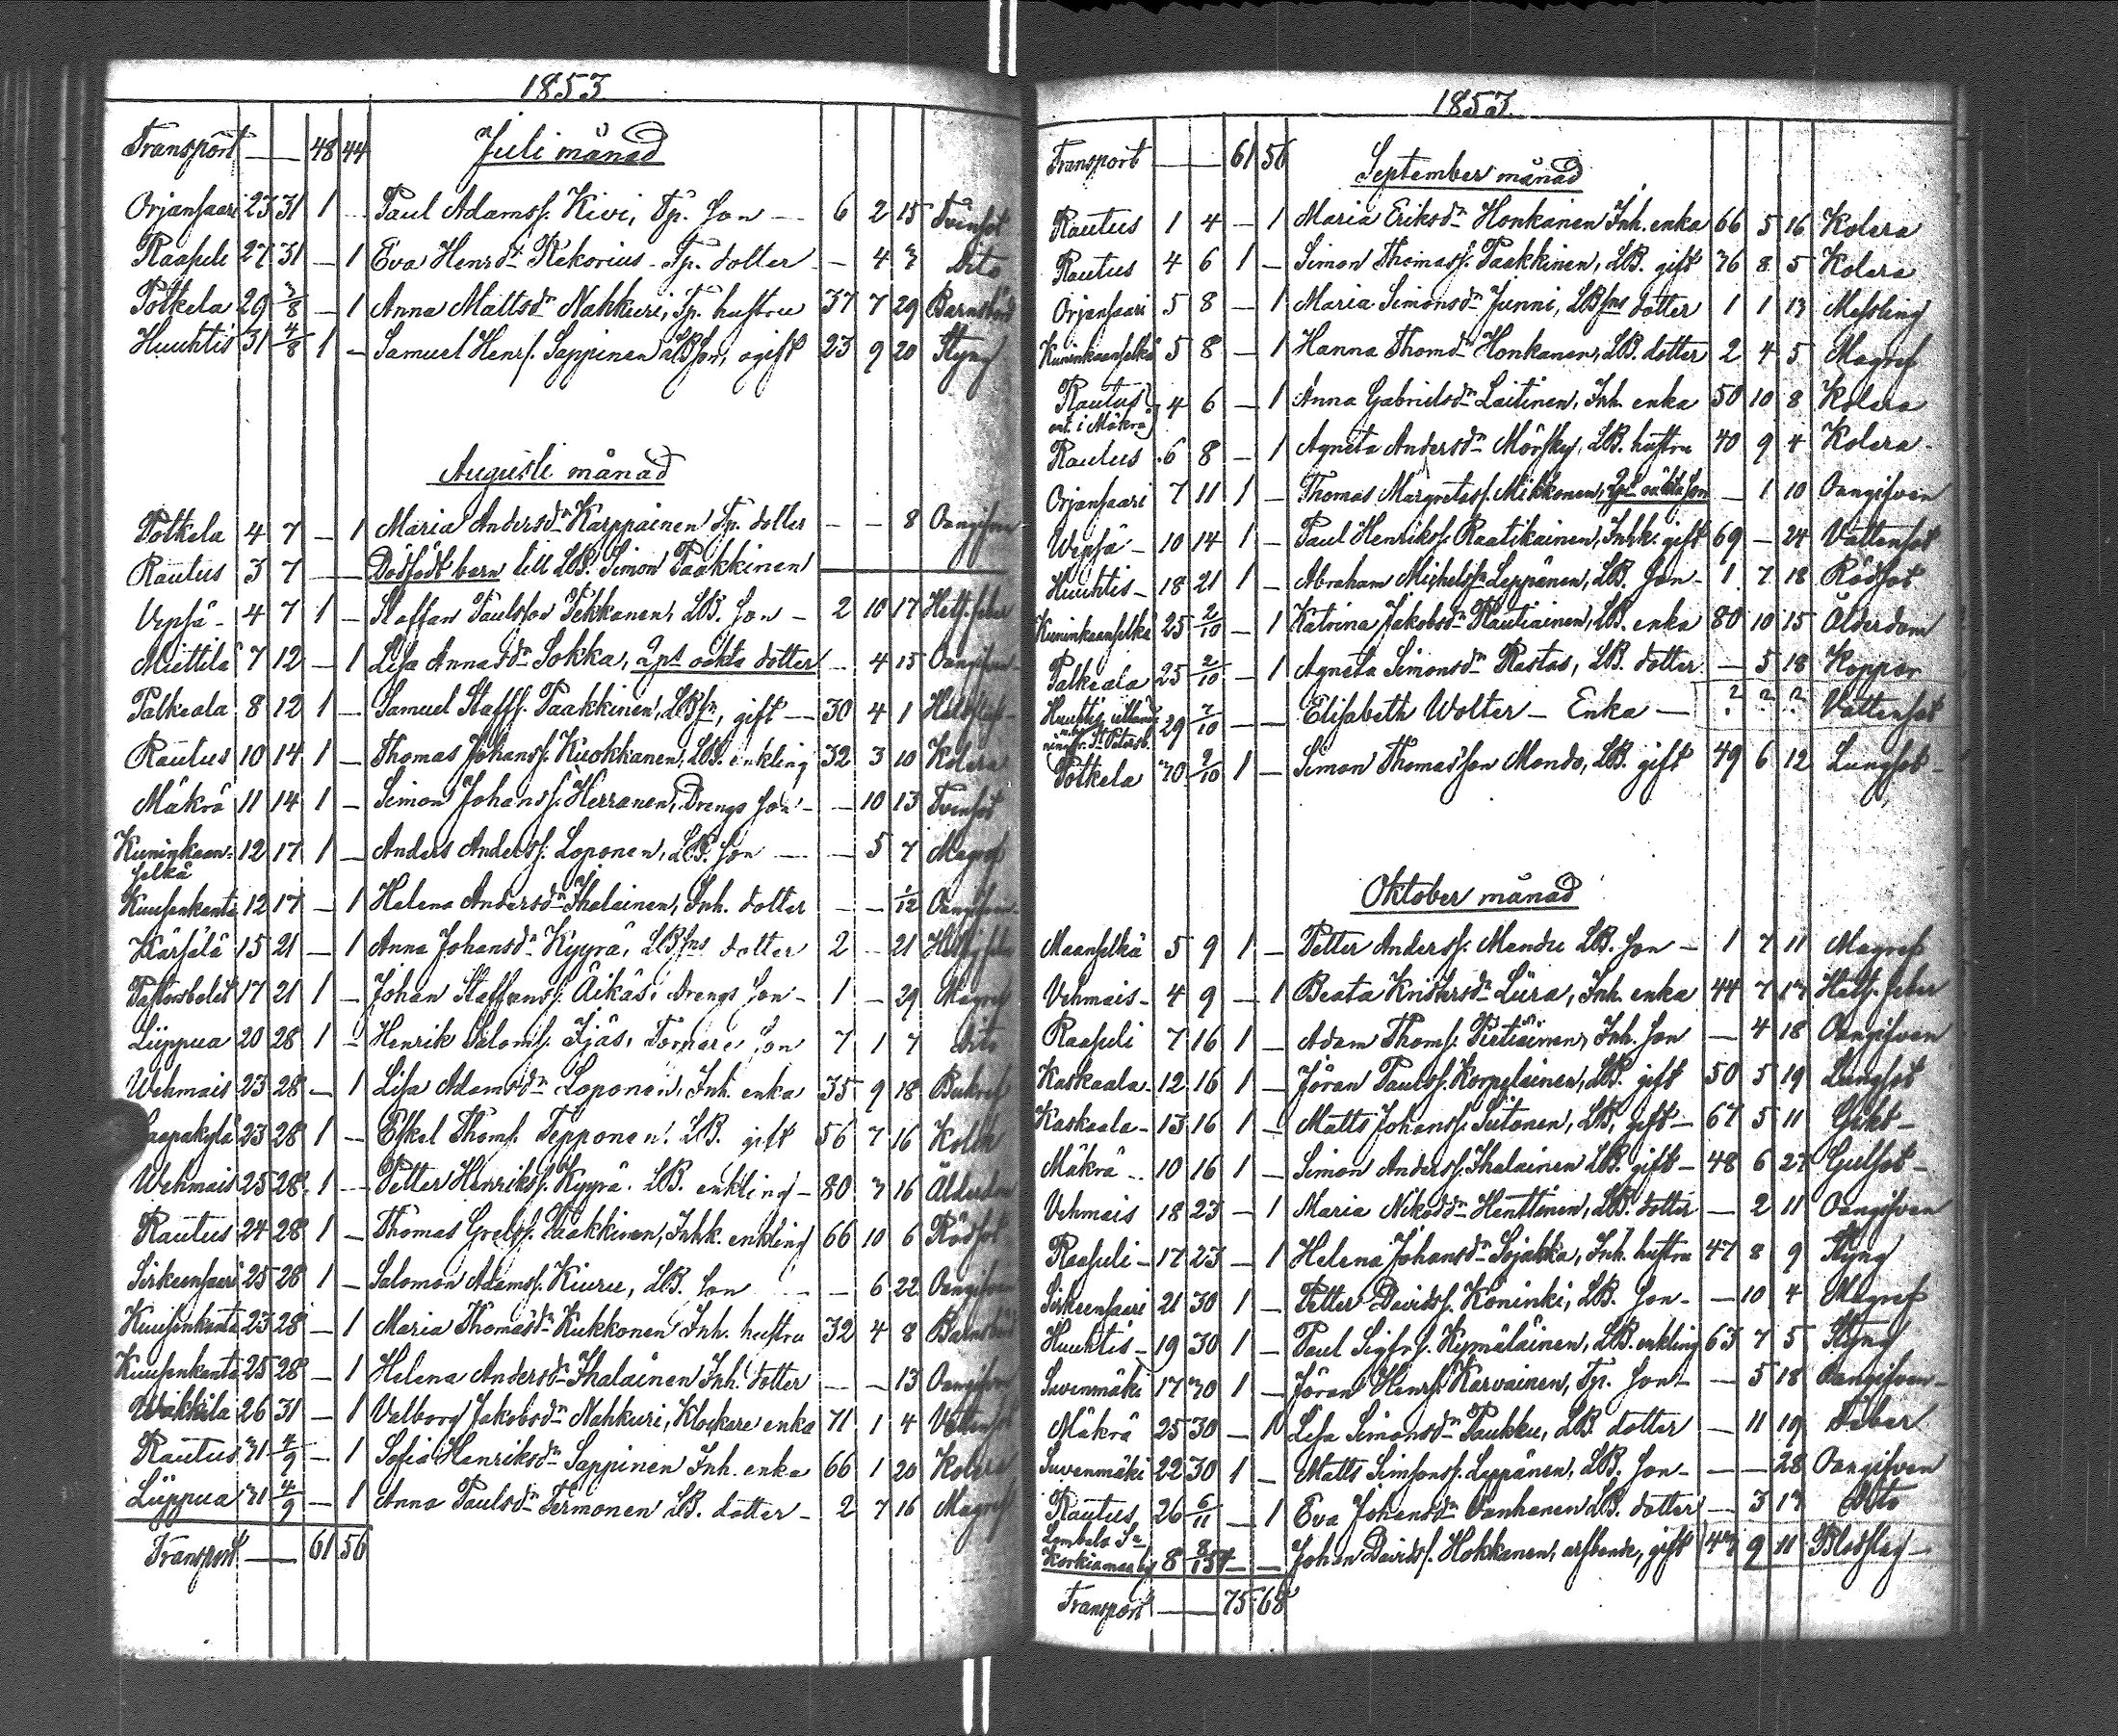 1853
Transport — 48 44 Juli månad
Orjansaari 23 31 1 - Paul Adamss. Kivi, Tp. son — 6 2 15 Tvinsot
Raasuli 27 31 — 1 Eva Henrsdr Rekorius Tp. dotter - — 4 3 dito
Potkela 29 3/8 — 1 Anna Mattsdr Nahkuri, Tp. hustru 37 7 29 Barnsbörd
Huuhtis 31 4/8 1 — Samuel Henrs. Sappinen LBson, ogift 23 9 20 Styng
Augusti månad
Potkela 4 7 — 1 Maria Andersdr Karppainen Tp. dotter - - 8 Oangifven
Rautus 3 7 — — Dödfödt barn till LB. Simon Paakkinen
Vepsä - 4 7 1 — Staffan Paulsson Pekkanen, LB. son - 2 10 17 Hets. feber
Miettilä 7 12 — 1 Lisa Annasdr Sokka, Tps oäkta dotter - 4 15 Oangifven
Palkeala 8 12 1 — Samuel Staffs. Paakkinen, LBsn, gift — 30 4 1
Rautus 10 14 1 — Thomas Johanss. Kuokkanen, LB. enkling 32 3 10 Kolera
Mäkrä 11 14 1 — Simon Johanss. Herranen, Drengs son - — 10 13 Tvinsot
Kuninkaan-
selkä 12 17 1 — Anders Anderss. Loponen, LB. son — — 5 7 Magref
Kuusenkanta 12 17 — 1 Helena Andersdr Ihalainen, Inh. dotter - — 1/12 Oangifven
Kärsälä 15 21 — 1 Anna Johansdr Kyyrä, LBsns dotter 2 - 21
Pastorsbolet 17 21 1 — Johan Staffanss. Äikäs, Drengs son - 1 - 29 Magref
Liippua 20 28 1 - Henrik Saloms. Ijäs, Tornare son 7 1 7 dito
Wehmais 23 28 — 1 Lisa Adamsdr Loponen, Inh. enka 35 9 18 Bukref
Haapakylä 23 28 1 — Eskel Thoms. Tepponen, LB. gift 56 7 16 Kolik
Wehmais 25 28 1 — Petter Henrikss. Kyyrä. LB. enkling - 80 3 16 Ålderdom
Rautus 24 28 1 — Thomas Grelss. Paakkinen, Inhk. enkling 66 10 6 Rödsot
Sirkeensaari 25 28 1 — Salomon Adamss. Kiuru, LB. son — — 6 22 Oangifven
Kuusenkanta 23 28 — 1 Maria Thomasdr Kukkonen Inh. hustru 32 4 8 Barnsbörd
Kuusenkanta 25 28 — 1 Helena Andersdr Ihalainen Inh. dotter — — 13 Oangifven
Wäkkilä 26 31 — 1 Valborg Jakobsdr Nahkuri, Klockare enka 71 1 4 Vattensot
Rautus 31 4/9 — 1 Sofia Henriksdr Sappinen Inh. enka 66 1 20 Kolera
Liippua 31 4/9 — 1 Anna Paulsdr Termonen LB. dotter - 2 7 16 Magref
Transport. — 61 56
1853.
Transport — 61 56 September månad
Rautus 1 4 — 1 Maria Eriksdr Honkanen Inh. enka 66 5 16 Kolera
Rautus 4 6 1 — Simon Thomass. Paakkinen, LB. gift 36 8 5 Kolera
Orjansaari 5 8 — 1 Maria Simonsdr Junni, LBsns dotter 1 1 13 Messling
Kuninkaanselkä 5 8 — 1 Hanna Thomdr Honkanen, LB. dotter 2 4 5 Magref
Rautus
 4 6 — 1 Anna Gabrielsdr Laitinen, Inh. enka 50 10 8 Kolera
 i Mäkrä
Rautus 6 8 — 1 Agneta Andersdr Mörsky, LB. hustru 40 9 4 Kolera
Orjansaari 7 11 1 — Thomas Margretass. Mikkonen, Tps oäkta son — 1 10 Oangifven
Wepsä - 10 14 1 — Paul Henrikss. Raatikainen, Inhk. gift 69 — 24 Vattensot
Huuhtis - 18 21 1 — Abraham Michelss. Leppänen, LB. son - 1 7 18 Rödsot
Kuninkaanselkä 25 2/10 — 1 Katrina Jakobsdr Rautiainen, LB. enka 80 10 15 Ålderdom
Palkeala 25 2/10 — 1 Agneta Simonsdr Rastas, LB. dotter — 5 18 Koppor
Huuhtis
 St. Petersb. 29 2/10 — — Elisabeth Wolter — Enka — ? ? ? Vattensot
Potkela 30 2/10 1 — Simon Thomasson Mondo, LB. gift 49 6 12 Lungsot
Oktober månad
Maanselkä 5 9 1 — Petter Anderss. Mandu LB. son - 1 7 11 Magref
Vehmais - 4 9 — 1 Beata Kristersdr Liira, Inh. enka 44 7 17 Hets. feber
Raasuli 7 16 1 — Adam Thoms. Pietiäinen, Inh. son — 4 18 Oangifven
Kaskaala - 12 16 1 — Jöran Paulss. Korpelainen, LB. gift 50 5 19 Lungsot
Kaskaala - 13 16 1 — Matts Johanss. Siitonen, LB. gift - 67 5 11 Gikt
Mäkrä - 10 16 1 — Simon Anderss. Ihalainen LB. gift - 48 6 27 Gulsot
Vehmais 18 23 — 1 Maria Nikodr Henttinen, LB. dotter — 2 11 Oangifven
Raasuli - 17 23 — 1 Helena Johansdr Sojakka, Inh. hustru 47 8 9 Styng
Sirkeensaari 21 30 1 — Petter Davidss. Köninki, LB. son - — 10 4 Magref
Huuhtis - 19 30 1 — Paul Sigfrs. Kymäläinen, LB. enkling 63 7 5 Styng
Suvenmäki 17 30 1 — Jöran Henrs. Karvainen, Tp. son - — 5 18 Oangifven
Mäkrä 25 30 — 1 Lisa Simonsdr Paukku, LB. dotter — 11 19 Feber
Suvenmäki 22 30 1 — Matts Simonss. Leppänen, LB. son - — — 28 Oangifven
Rautus 26 6/11 — 1 Eva Johansdr Vanhanen LB. dotter — 3 17 Dito
Lembala Sn
 8 — — Johan Davids. Hokkanen, gift 47 9 11 Blodslag
Transport — 75 68